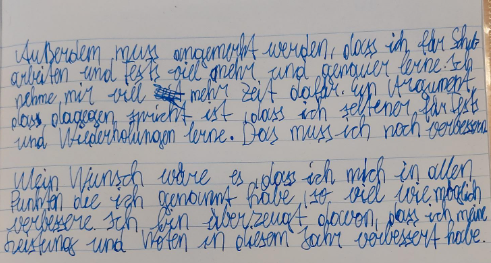 Außerdem muss angemerkt werden, dass ich für Schul-
arbeiten und Tests viel mehr und genauer lerne. Ich
nehme mir viel mehr Zeit dafür. Ein Argument,
dass dagegen spricht ist, dass ich seltener für Tests
und Wiederholungen lerne. Das muss ich noch verbessern.
Mein Wunsch wäre es, dass ich mich in allen
Punkten die ich genannt habe, so viel wie möglich
verbessere. Ich bin überzeugt davon, dass ich meine
Leistung und Noten in diesem Jahr verbessert habe.